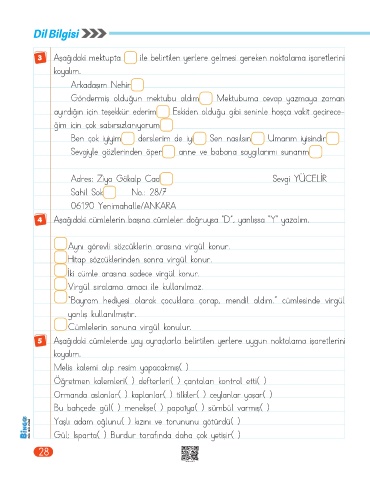 Dil Bilgisi
3 Aşağıdaki mektupta ile belirtilen yerlere gelmesi gereken noktalama işaretlerini
koyalım.
Arkadaşım Nehir
Göndermiş olduğun mektubu aldım Mektubuma cevap yazmaya zaman
ayırdığın için teşekkür ederim Eskiden olduğu gibi seninle hoşça vakit geçirece-
ğim için çok sabırsızlanıyorum
Ben çok iyiyim derslerim de iyi Sen nasılsın Umarım iyisindir
Sevgiyle gözlerinden öper anne ve babana saygılarımı sunarım
Adres: Ziya Gökalp Cad Sevgi YÜCELİR
Sahil Sok No.: 28/7
06190 Yenimahalle/ANKARA
4 Aşağıdaki cümlelerin başına cümleler doğruysa "D", yanlışsa "Y" yazalım.
Aynı görevli sözcüklerin arasına virgül konur.
Hitap sözcüklerinden sonra virgül konur.
İki cümle arasına sadece virgül konur.
Virgül sıralama amacı ile kullanılmaz.
"Bayram hediyesi olarak çocuklara çorap, mendil aldım." cümlesinde virgül
yanlış kullanılmıştır.
Cümlelerin sonuna virgül konulur.
5 Aşağıdaki cümlelerde yay ayraçlarla belirtilen yerlere uygun noktalama işaretlerini
koyalım.
Melis kalemi alıp resim yapacakmış( )
Öğretmen kalemleri( ) defterleri( ) çantaları kontrol etti( )
Ormanda aslanlar( ) kaplanlar( ) tilkiler( ) ceylanlar yaşar( )
Bu bahçede gül( ) menekşe( ) papatya( ) sümbül varmış( )
Yaşlı adam oğlunu( ) kızını ve torununu götürdü( )
Gül; Isparta( ) Burdur tarafında daha çok yetişir( )
28